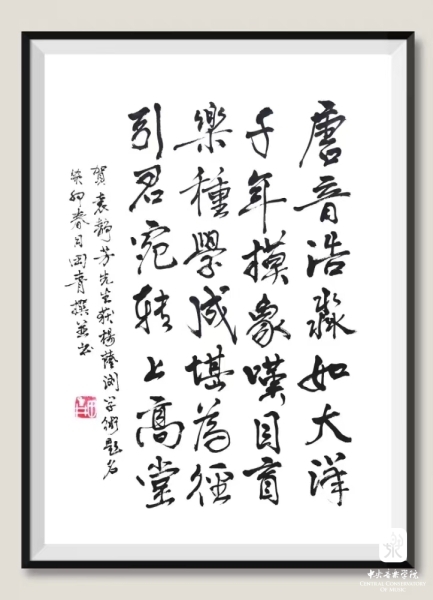 唐音浩淼如大洋
千年摸象嘆目盲
樂種學成堪為徑
引君宛轉上高堂
賀袁靜芳先生获楊蔭浏学術題名
癸卯春日田青撰並书
中央音乐学院
CENTRAL CONSERVATORY
OF MUSIC